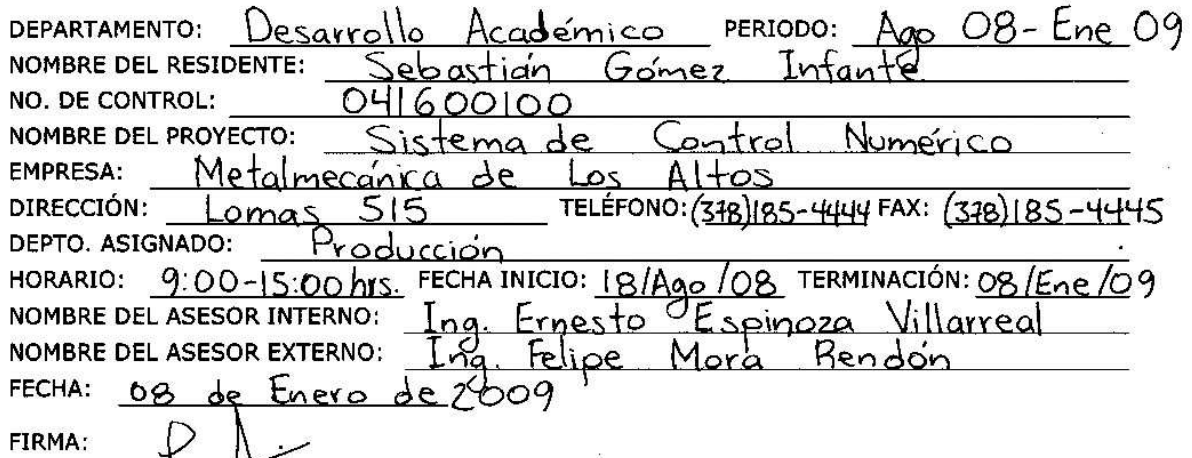 DEPARTAMENTO: Desarrollo Académico PERIODO: Ago 08-Ene 09
NOMBRE DEL RESIDENTE: Sebastián Gómez Infante
NO. DE CONTROL: 041600100
NOMBRE DEL PROYECTO: Sistema de Control Numérico
EMPRESA: Metalmecánica de Los Altos
DIRECCIÓN: Lomas 515 TELÉFONO: (378)185-4444 FAX: (378)185-4445
DEPTO. ASIGNADO: Producción
HORARIO: 9:00-15:00 hrs. FECHA INICIO: 18/Ago/08 TERMINACIÓN: 08/Ene/09
NOMBRE DEL ASESOR INTERNO: Ing. Ernesto Espinoza Villarreal
NOMBRE DEL ASESOR EXTERNO: Ing. Felipe Mora Rendón
FECHA: 08 de Enero de 2009
FIRMA: